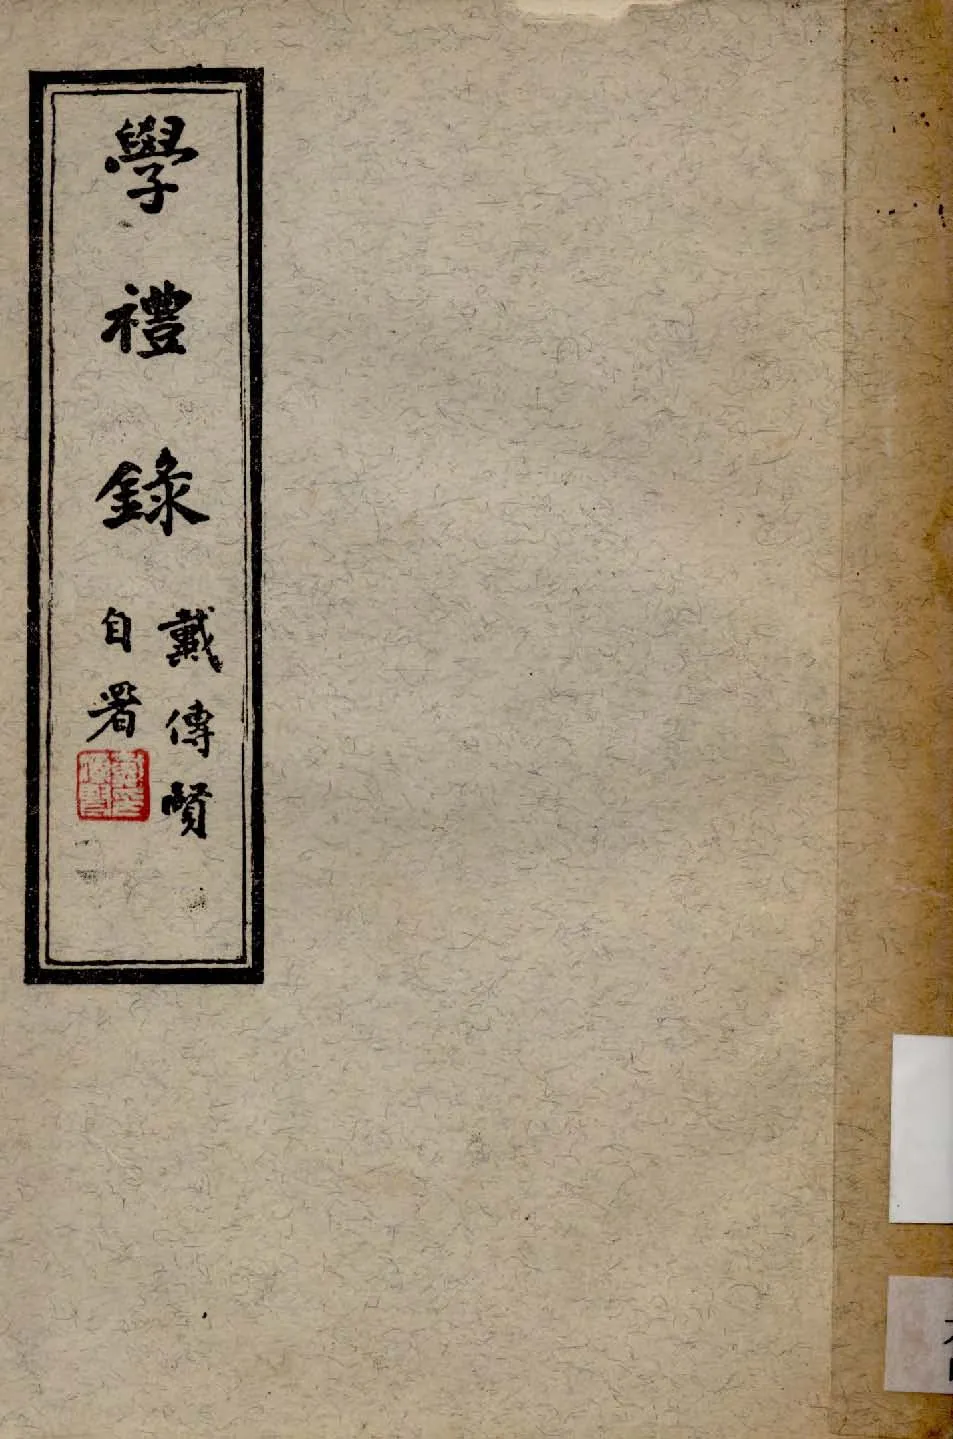 學禮錄
戴傳賢
自署